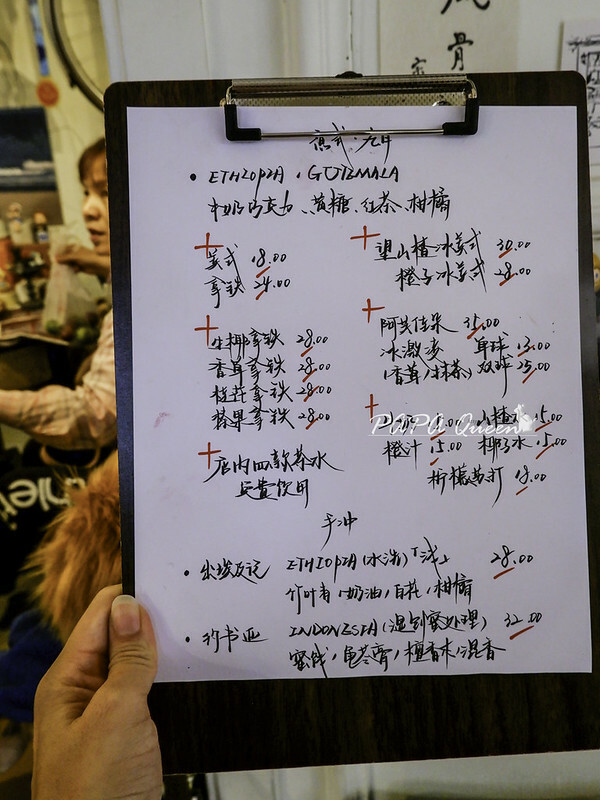 风骨
意式·店月
• ETHIOPIA · GUTEMALA
牛奶巧克力、黄糖、红茶、柑橘
美式 18.00
拿铁 24.00
生椰拿铁 28.00
香草拿铁 28.00
桂花拿铁 28.00
榛果拿铁 28.00
店内四款茶水
免费饮用
望山楂冰美式 30.00
橙子冰美式 28.00
阿芙佳朵 35.00
冰激凌 单球 13.00
(香草/抹茶) 双球 25.00
山楂 15.00
橙汁 15.00 椰子水 15.00
柠檬苏打 18.00
PAPA Queen
手冲
• 埃塞 ETHIOPIA(水洗) 浅 28.00
竹叶青,奶油,白花,柑橘
• INDONESIA(湿刨处理) 32.00
蜜饯,龟苓膏,檀香木,混香